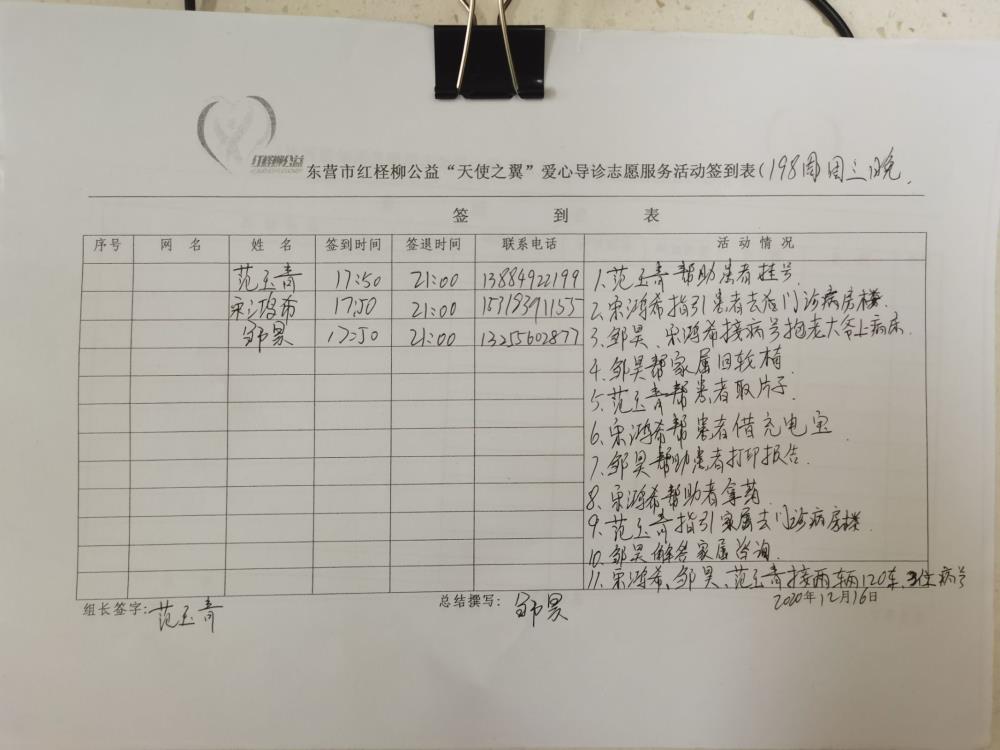 红柽柳公益
东营市红柽柳公益“天使之翼”爱心导诊志愿服务活动签到表(198周周三晚.
签 到 表
序号 网 名 姓 名 签到时间 签退时间 联系电话 活 动 情 况
范玉青 17:50 21:00 13884922199 1.范玉青帮助患者挂号
宋鸿希 17:50 21:00 15319391155 2.宋鸿希指引患者去在门诊病房楼.
邹昊 17:50 21:00 13255602877 3.邹昊、宋鸿希接病号抱老大爷上病床
4.邹昊帮家属回轮椅
5.范玉青帮患者取片子
6.宋鸿希帮患者借充电宝
7.邹昊帮助患者打印报告.
8.宋鸿希帮助者拿药
9.范玉青指引家属去门诊病房楼.
10.邹昊解答家属咨询.
11.宋鸿希、邹昊、范玉青接两辆120车、3位病号
组长签字:范玉青 总结撰写: 邹昊 2020年12月16日